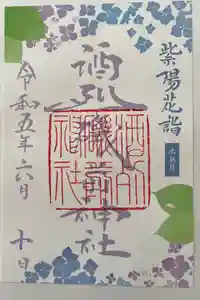 紫陽花詣
水無月
酒列磯前神社
酒列磯前神社
令和五年六月十日